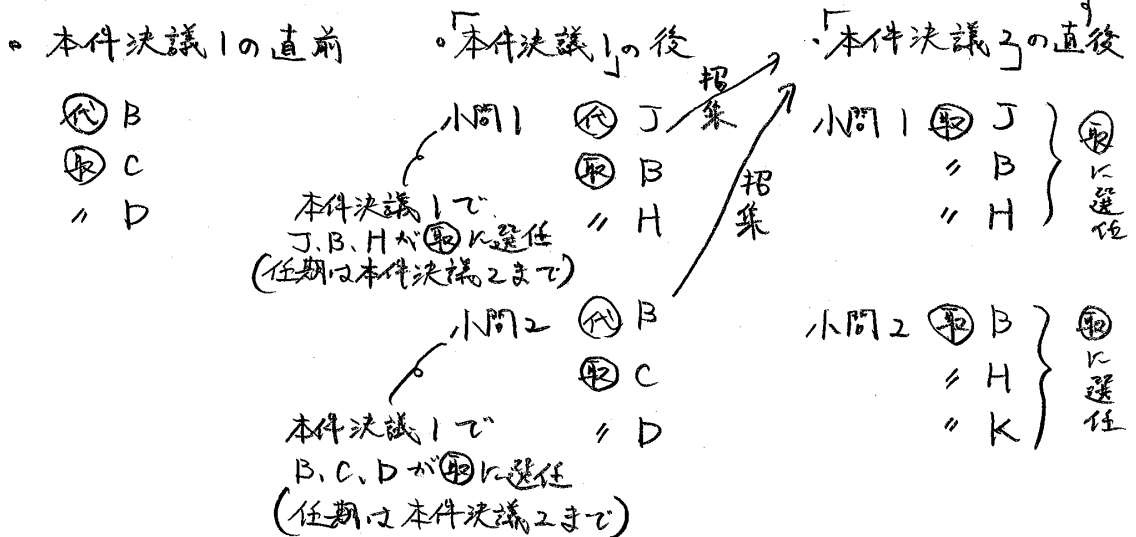 • 本件決議1の直前
代 B
取 C
〃 D
•「本件決議1」の後
小問1 代 J
取 B
〃 H
本件決議1で
J、B、Hが取に選任
(任期は本件決議2まで)
招集
小問2 代 B
取 C
〃 D
本件決議1で
B、C、Dが取に選任
(任期は本件決議2まで)
招集
•「本件決議2」の直後
小問1 取 J
〃 B
〃 H
取に選任
小問2 取 B
〃 H
〃 K
取に選任